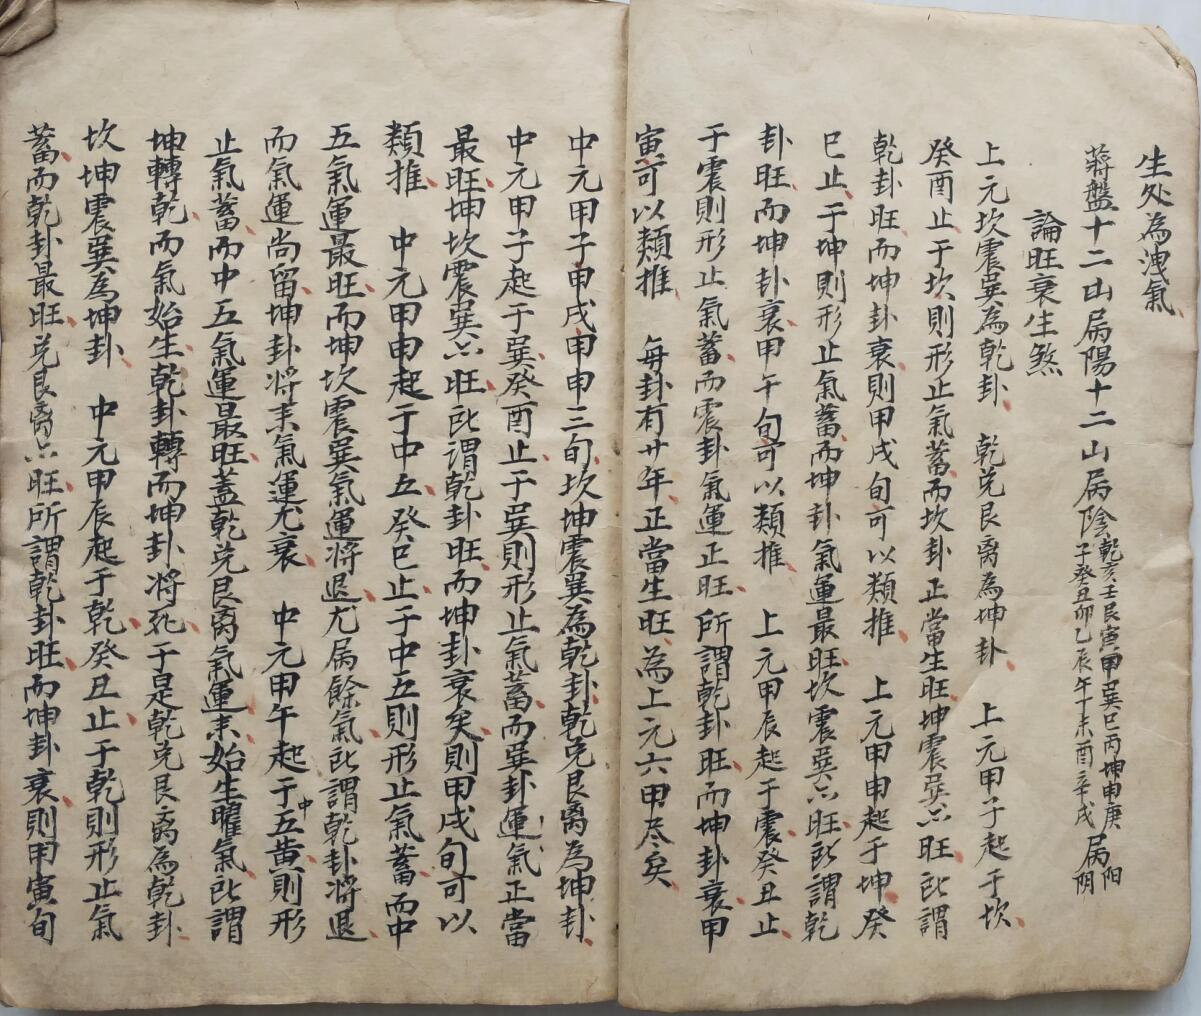 生处為洩氣
蔣盤十二山属陽十二山属陰乾亥壬艮寅甲巽巳丙坤申庚属阳子癸丑卯乙辰午丁未酉辛戌属阴
論旺衰生煞
上元坎震巽為乾卦 乾兑艮离為坤卦 上元甲子起于坎
癸酉止于坎則形止氣蓄而坎卦正當生旺坤震巽亦旺此謂
乾卦旺而坤卦衰則甲戌旬可以類推 上元甲申起于坤癸
巳止于坤則形止氣蓄而坤卦氣運最旺坎震巽亦旺此謂乾
卦旺而坤卦衰甲午旬可以類推 上元甲辰起于震癸丑止
于震則形止氣蓄而震卦氣運正旺所謂乾卦旺而坤卦衰甲
寅可以類推 每卦有廿年正當生旺為上元六甲尽矣
中元甲子甲戌甲申三旬坎坤震巽為乾卦乾兑艮离為坤卦
中元甲子起于巽癸酉止于巽則形止氣蓄而巽卦運氣正當
最旺坤坎震巽亦旺此謂乾卦旺而坤卦衰矣則甲戌旬可以
類推 中元甲申起于中五癸巳止于中五則形止氣蓄而中
五氣運最旺而坤坎震巽氣運將退尤属餘氣此謂乾卦將退
而氣運尚留坤卦将来氣運尤衰 中元甲午起于中五黄則形
止氣蓄而中五氣運最旺盖乾兑艮离氣運未始生矅氣此謂
坤轉乾而氣始生乾卦轉而坤卦将死于是乾兑艮离為乾卦
坎坤震巽為坤卦 中元甲辰起于乾癸丑止于乾則形止氣
蓄而乾卦最旺兑艮离亦旺所謂乾卦旺而坤卦衰則甲寅旬